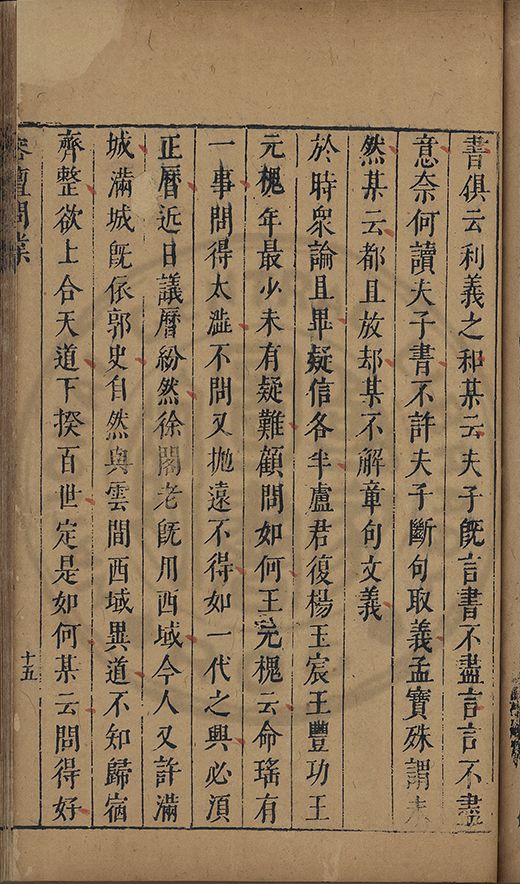 書俱云利義之和某云夫子旣言書不盡言言不盡
意奈何讀夫子書不許夫子斷句取義孟寶殊謂未
然某云都且放却某不解章句文義
於時衆論且畢疑信各半盧君復楊玉宸王豐功王
元槐年最少未有疑難顧問如何王元槐云命瑤有
一事問得太澁不問又拋遠不得如一代之興必須
正曆近日議曆紛然徐閣老旣用西域今人又許滿
城滿城旣依郭史自然與雲間西域異道不知歸宿
齊整欲上合天道下揆百世定是如何某云問得好
榕壇問業
十五